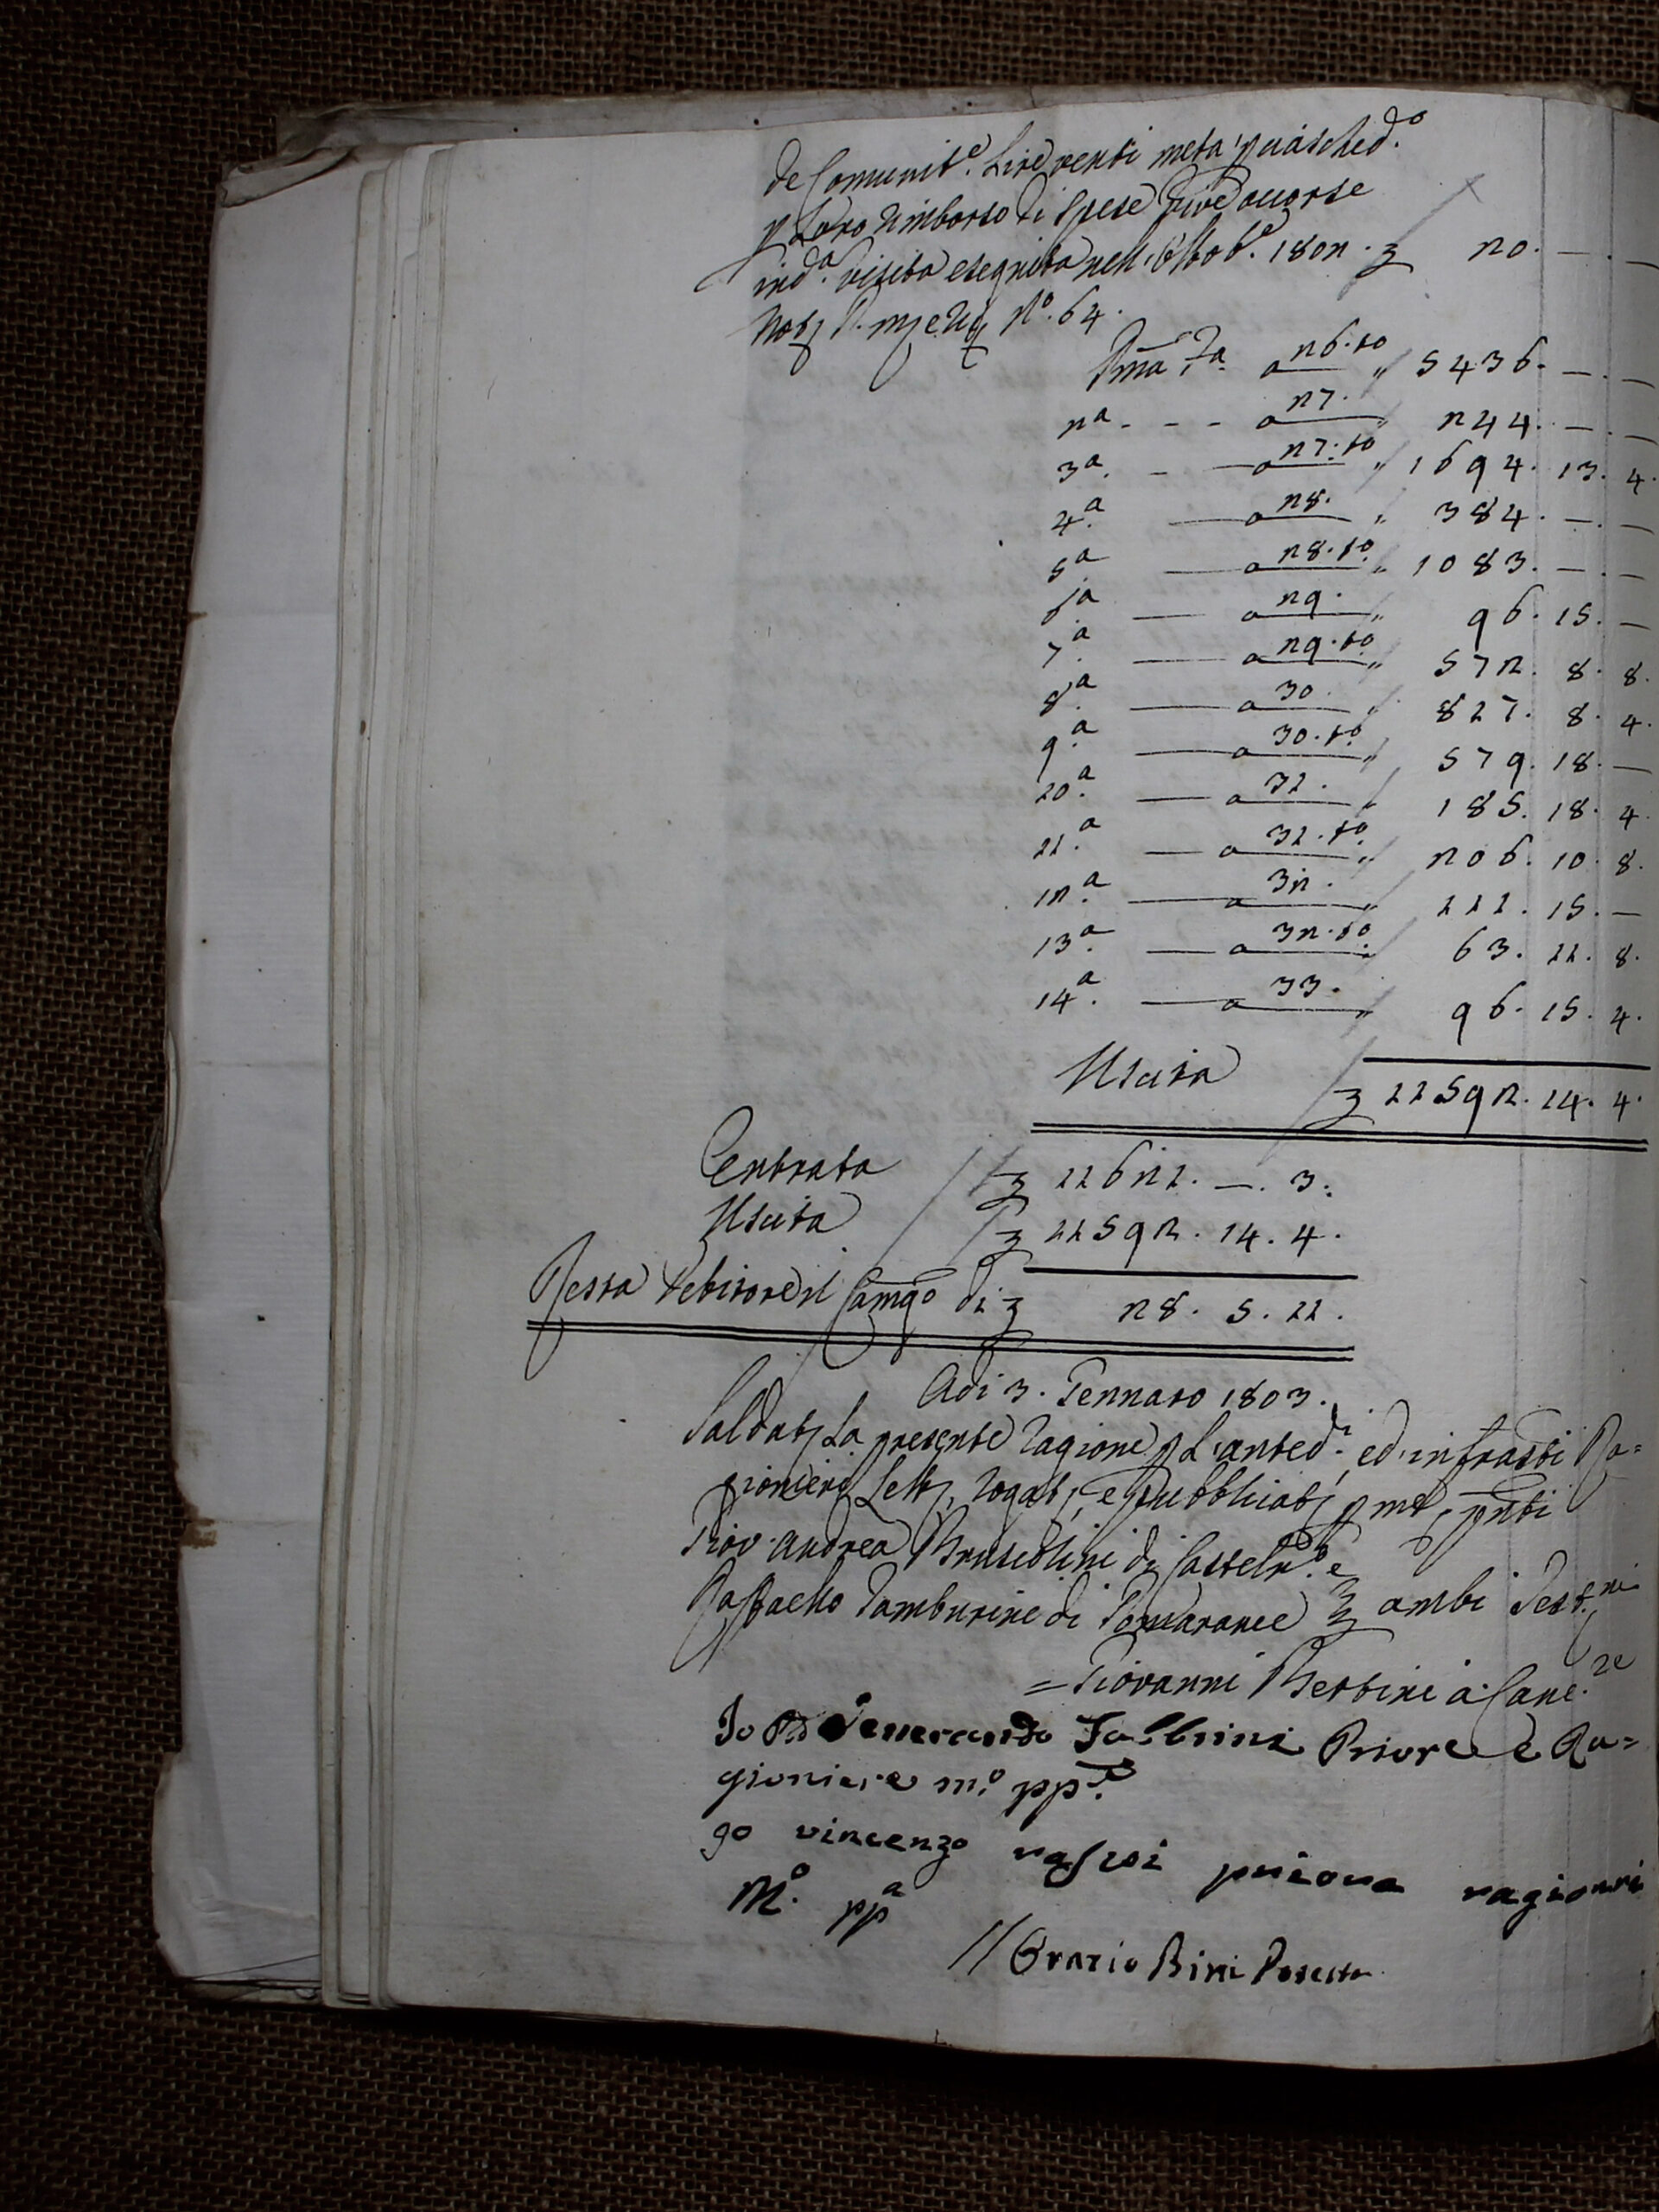 de Comunit.e Lire venti metà p ciasched.o
p Loro rimborso di spese vive occorse
in d.a visita eseguita nell'Ottob.e 1802. £ 20. — . —
N.o 64.
Pma, Fa. a 26.to " 5436. — . —
2a. - - - a 27. " 244. — . —
3a. - — a 27.to " 1694. 13. 4.
4.a — a 28. " 384. — . —
5.a — a 28.to " 1083. — . —
6.a — a 29. " 96. 15. —
7.a — a 29.to " 572. 8. 8.
8.a — a 30. " 817. 8. 4.
9.a — a 30.to " 579. 18. —
10.a — a 31. " 185. 18. 4.
11.a — a 31.to " 206. 10. 8.
12.a — a 32. " 111. 15. —
13.a — a 32.to " 63. 11. 8.
14.a — a 33. " 96. 15. 4.
Uscita £ 11592. 14. 4.
Entrata £ 11621. — . 3.
Uscita £ 11592. 14. 4.
Resta debitore il Camgo di £ 28. 5. 11.
Adì 3. Gennaro 1803.
Saldat, La presente ragione p L'anted.i ed infrastti Ra=
gionieri, Lett, rogat, e pubblicat, p me, pnti
Giov. Andrea Bruscolini di Casteln.o e
Raffaello Tamburini di Pomarance ambi Test.ni
= Giovanni Bertini a. Canc.re
Io Venerando Priore e Ra=
gioniere m.o pp.a
go vincenzo priore ragionri
M.o ppa
// Orazio Bini Potestà